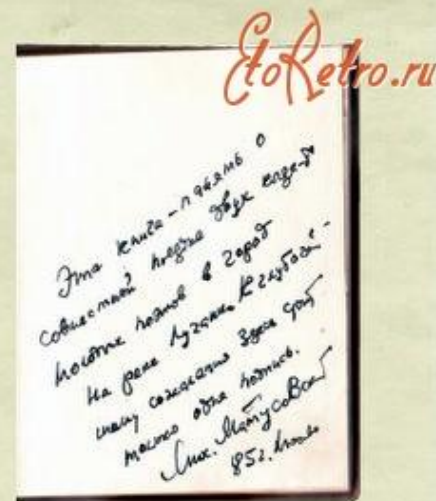 EtoRetro.ru
Эта книга – память о
совместной поездке двух когда-то
поэтов в город
на реке Лугани. К глубокому
сожалению здесь стоит
только одна подпись.
Мих. Матусовский
85 г.